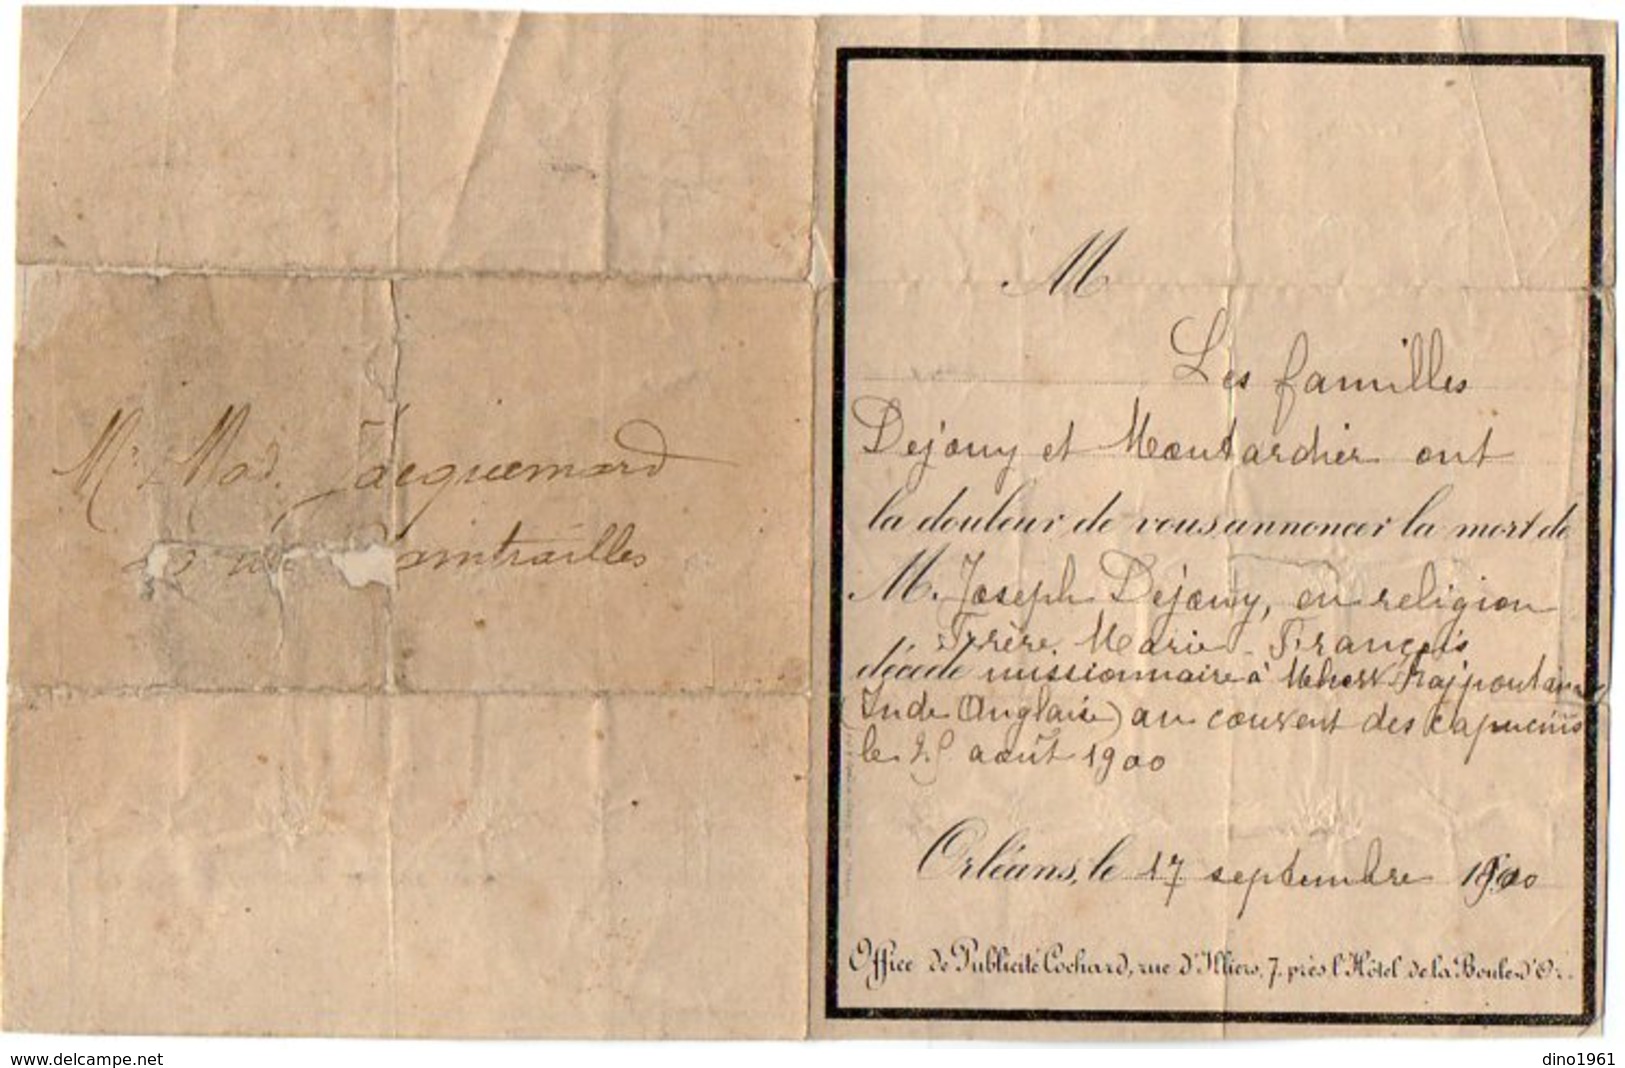 Mr & Mad. Jacquemard
rue Xaintrailles
M
Les familles
Dejouy et Moutardier ont
la douleur de vous annoncer la mort de
M. Joseph Dejouy, en religion
Frère Marie-François
décédé missionnaire à Rajpoutana
(Inde Anglaise) au couvent des capucins
le août 1900
Orléans, le 17 septembre 1900
Office de Publicité Cochard, rue d'Illiers, 7, près l'Hôtel de la Boule d'Or.
www.delcampe.net
dino1961